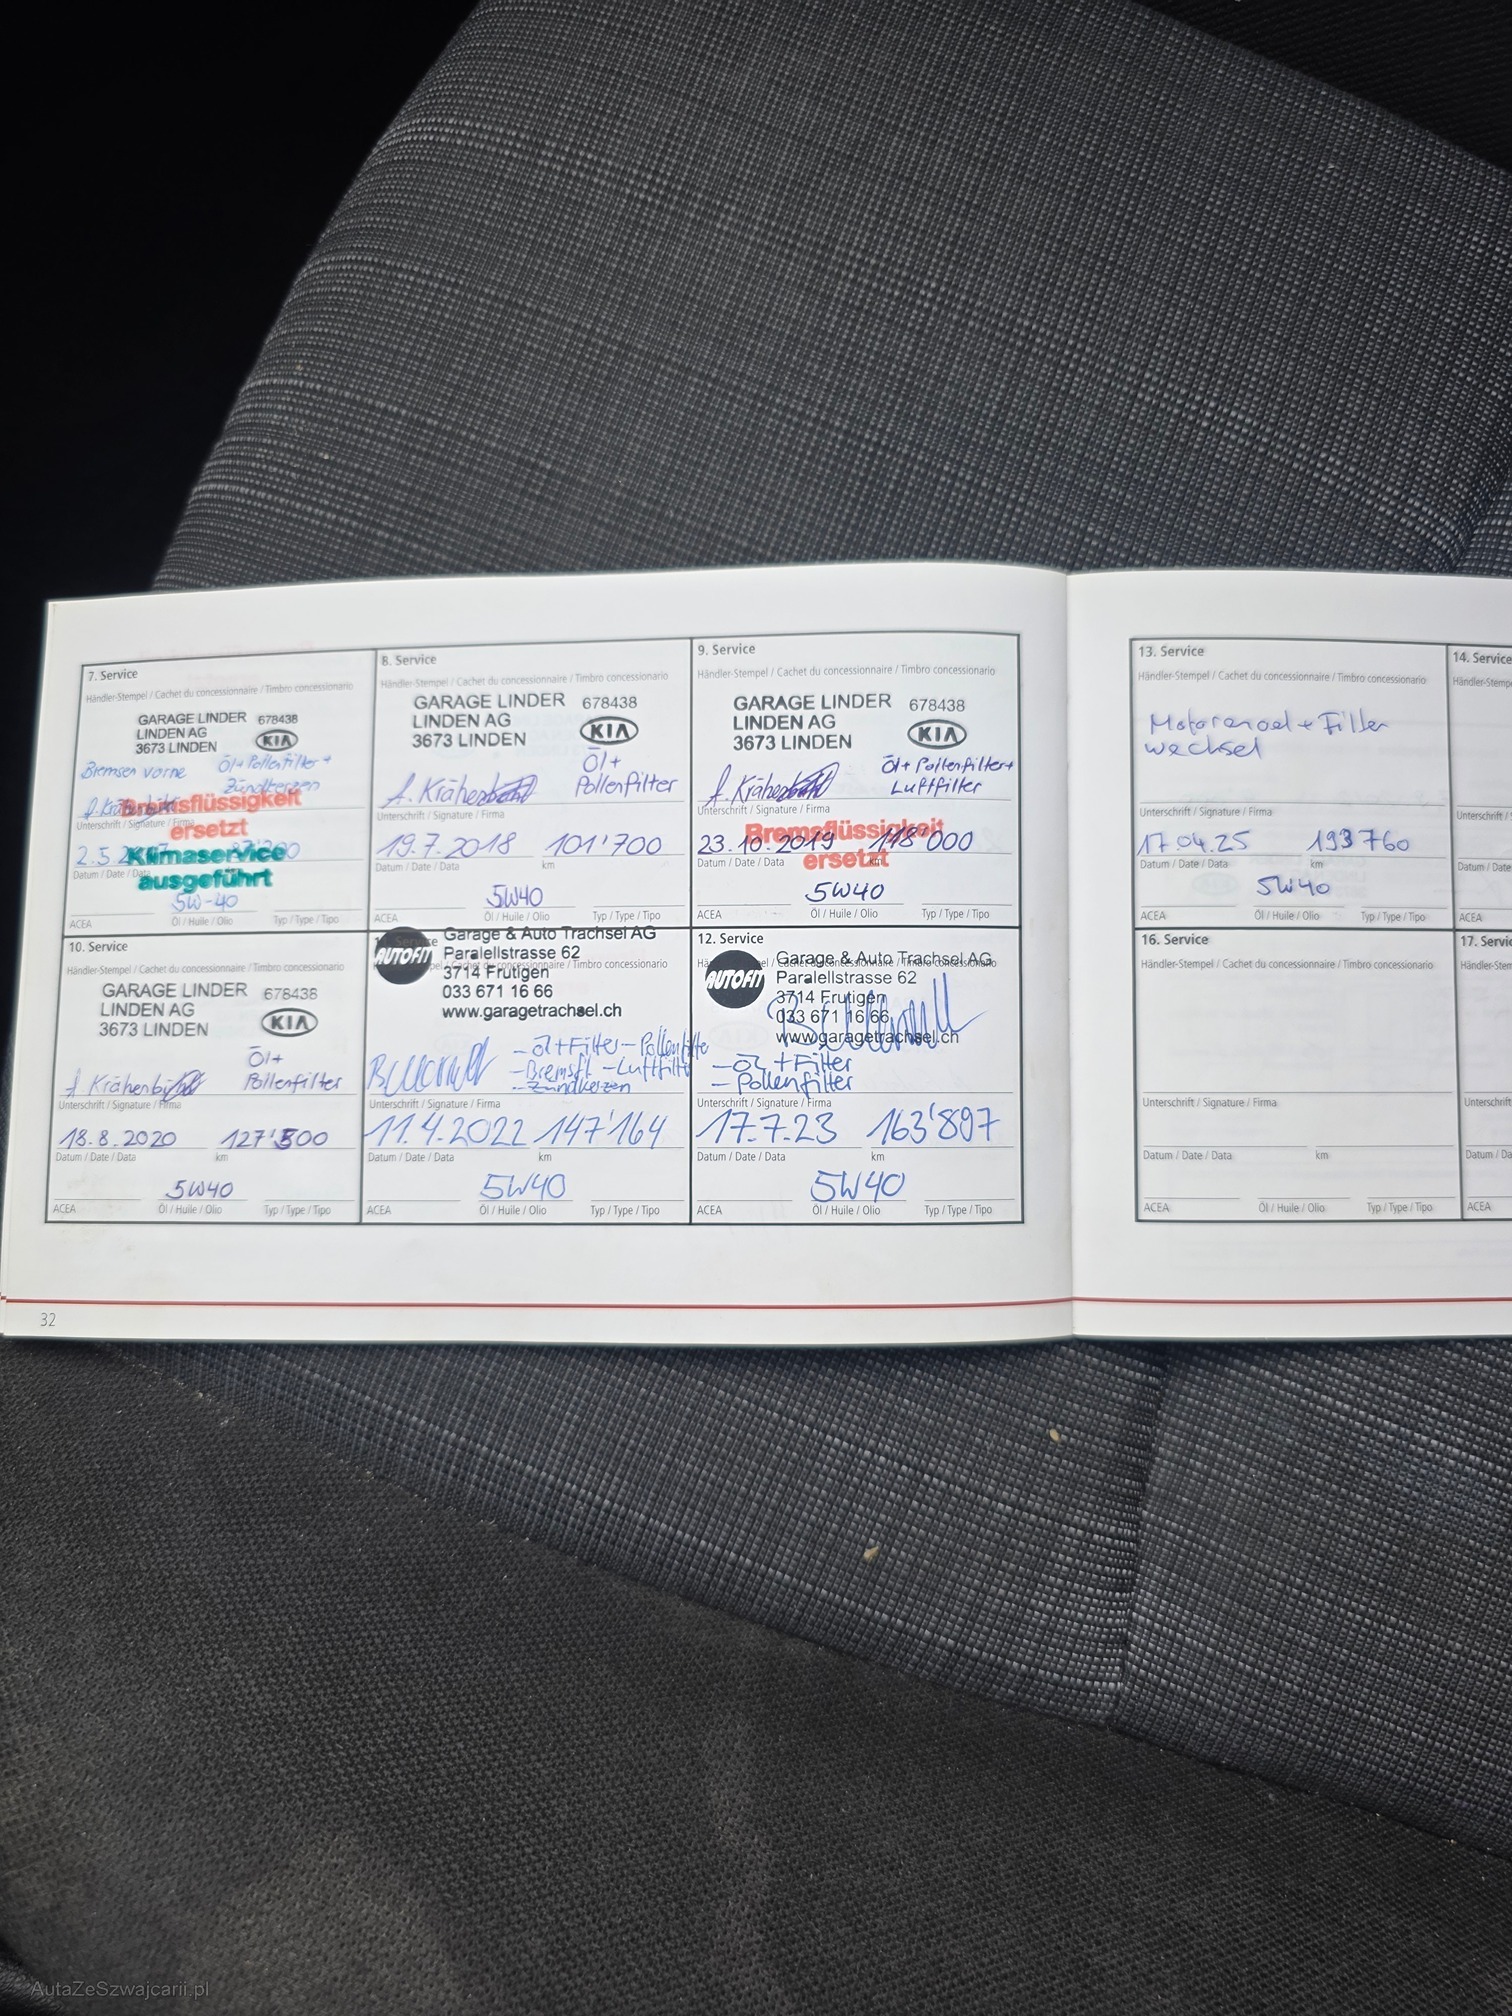 7. Service
Händler-Stempel / Cachet du concessionnaire / Timbro concessionario
GARAGE LINDER 678438
LINDEN AG
3673 LINDEN KIA
Bremsen vorne Öl+Pollenfilter+
Zündkerzen
Bremsflüssigkeit
Unterschrift / Signature / Firma
ersetzt
2.5.2
Klimaservice
Datum / Date / Data
ausgeführt
5W-40
ACEA Öl / Huile / Olio Typ / Type / Tipo
8. Service
Händler-Stempel / Cachet du concessionnaire / Timbro concessionario
GARAGE LINDER 678438
LINDEN AG
3673 LINDEN KIA
Öl+
Pollenfilter
Unterschrift / Signature / Firma
19.7.2018 101'700
Datum / Date / Data km
5W40
ACEA Öl / Huile / Olio Typ / Type / Tipo
9. Service
Händler-Stempel / Cachet du concessionnaire / Timbro concessionario
GARAGE LINDER 678438
LINDEN AG
3673 LINDEN KIA
Öl+Pollenfilter+
Luftfilter
Unterschrift / Signature / Firma
Bremsflüssigkeit
23.10.2019 118'000
ersetzt
Datum / Date / Data km
5W40
ACEA Öl / Huile / Olio Typ / Type / Tipo
10. Service
Händler-Stempel / Cachet du concessionnaire / Timbro concessionario
GARAGE LINDER 678438
LINDEN AG
3673 LINDEN KIA
Öl+
Pollenfilter
Unterschrift / Signature / Firma
18.8.2020 127'500
Datum / Date / Data km
5W40
ACEA Öl / Huile / Olio Typ / Type / Tipo
Service
AUTOFIT
Garage & Auto Trachsel AG
Paralellstrasse 62
Cachet du concessionnaire / Timbro concessionario
3714 Frutigen
033 671 16 66
www.garagetrachsel.ch
- Öl+Filter - Pollenfilter
- Bremsfl. - Luftfilter
- Zündkerzen
Unterschrift / Signature / Firma
11.4.2022 147'164
Datum / Date / Data km
5W40
ACEA Öl / Huile / Olio Typ / Type / Tipo
12. Service
AUTOFIT
Garage & Auto Trachsel AG
Paralellstrasse 62
3714 Frutigen
033 671 16 66
www.garagetrachsel.ch
- Öl + Filter
- Pollenfilter
Unterschrift / Signature / Firma
17.7.23 163'897
Datum / Date / Data km
5W40
ACEA Öl / Huile / Olio Typ / Type / Tipo
32
13. Service
Händler-Stempel / Cachet du concessionnaire / Timbro concessionario
Motorenoel + Filter
wechsel
Unterschrift / Signature / Firma
17.04.25 193760
Datum / Date / Data km
5W40
ACEA Öl / Huile / Olio Typ / Type / Tipo
14. Service
Händler-Stemp
Unterschrift / S
Datum / Date
ACEA
16. Service
Händler-Stempel / Cachet du concessionnaire / Timbro concessionario
Unterschrift / Signature / Firma
Datum / Date / Data km
ACEA Öl / Huile / Olio Typ / Type / Tipo
17. Serv
Händler-Stem
Unterschrift
Datum / Da
ACEA
AutaZeSzwajcarii.pl